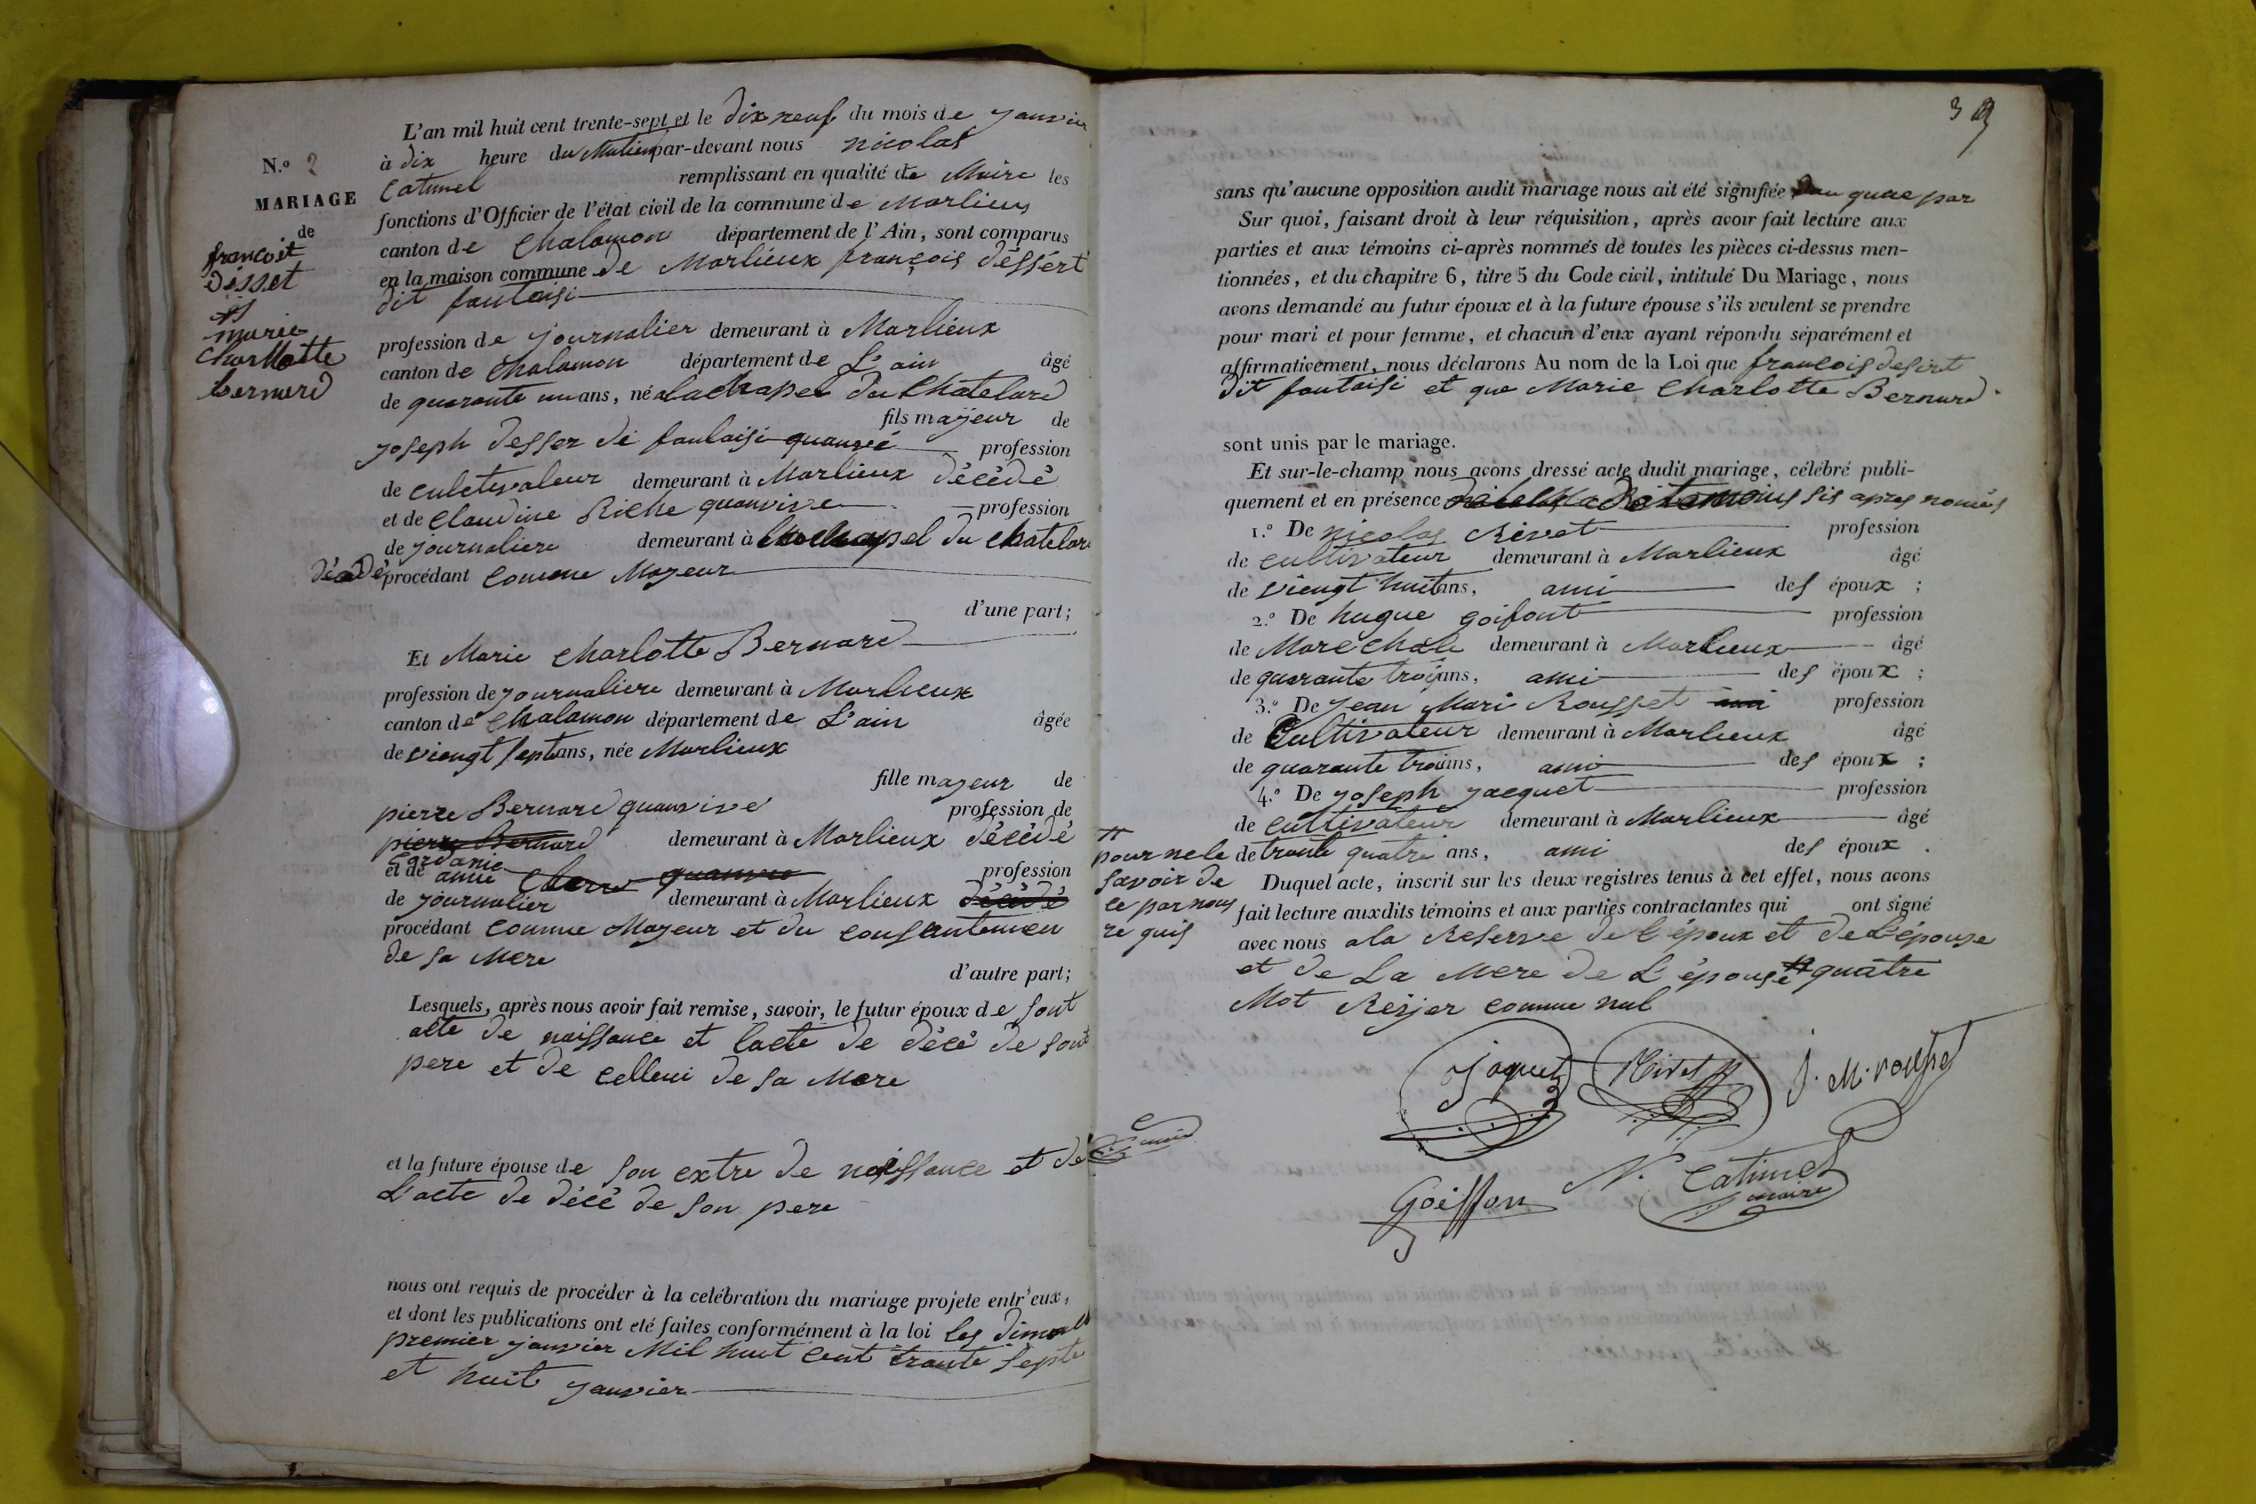 N.° 2
MARIAGE
de
francoit
Désset
et
marie
Charllotte
bernard
L'an mil huit cent trente-sept et le dix neuf du mois de janvier
à dix heure du Matien par-devant nous nicolas
Catimel remplissant en qualité de Maire les
fonctions d'Officier de l'état civil de la commune de Marlieux
canton de Chalamon département de l'Ain, sont comparus
en la maison commune de Marlieux françois déssért
dit fantaisi
profession de journalier demeurant à Marlieux
canton de Chalamon département de L'ain âgé
de quarante un ans, né a lachapel du Châtelard
fils majeur de
joseph desser di fantaisi profession
de culctivateur demeurant à Marlieux décédé
et de Claudine Riche quanvive profession
de journaliere demeurant à lachapel du Chatelard
décédé procédant comme Majeur
d'une part;
Et Marie Charlotte Bernard
profession de journaliere demeurant à Marlieux
canton de Chalamon département de L'ain âgée
de viengt sept ans, née Marlieux
fille majeur de
pierre Bernard quanvive profession de
pierre Bernard demeurant à Marlieux décédé
et de anne profession
de journalier demeurant à Marlieux décédé
procédant comme Majeur et du consantemen
de sa Mere
d'autre part;
Lesquels, après nous avoir fait remise, savoir, le futur époux de sont
acte de naissance et lacte de décé de sont
pere et de cellui de sa Mere
et la future épouse de son extre de naissance et de
L'acte de décé de son pere
nous ont requis de procéder à la celébration du mariage projete entr'eux,
et dont les publications ont eté faites conformément à la loi les dimanch
premier janvier Mil huit cent trante septe
et huit janvier
39
sans qu'aucune opposition audit mariage nous ait été signifiée
Sur quoi, faisant droit à leur réquisition, après avoir fait lecture aux
parties et aux témoins ci-après nommés de toutes les pièces ci-dessus men-
tionnées, et du chapitre 6, titre 5 du Code civil, intitulé Du Mariage, nous
avons demandé au futur époux et à la future épouse s'ils veulent se prendre
pour mari et pour femme, et chacun d'eux ayant répondu séparément et
affirmativement, nous déclarons Au nom de la Loi que francois desirt
dit fantaisi et que Marie Charlotte Bernard
sont unis par le mariage.
Et sur-le-champ nous avons dressé acte dudit mariage, célébré publi-
quement et en présence temoins sis apres només
1.° De nicolas Rivet profession
de Cultivateur demeurant à Marlieux âgé
de viengt huit ans, ami des époux ;
2.° De hugue goifont profession
de Marechale demeurant à Marlieux âgé
de quarante trois ans, ami des époux ;
3.° De Jean Mari Rousset ami profession
de Cultivateur demeurant à Marlieux âgé
de quarante trois ans, ami des époux ;
4.° De joseph jacquet profession
de cultivateur demeurant à Marlieux âgé
de trante quatre ans, ami des époux .
Duquel acte, inscrit sur les deux registres tenus à cet effet, nous avons
fait lecture auxdits témoins et aux parties contractantes qui ont signé
avec nous ala Reserve de l'époux et de L'épouse
et de La Mere de L'épouse # quatre
Mot Reyjer comme nul
#
pour ne le
savoir de
ce par nous
re quis
maire
J jaquet
Rivet
J. M. rousset
Goiffon
N. Catimel
maire